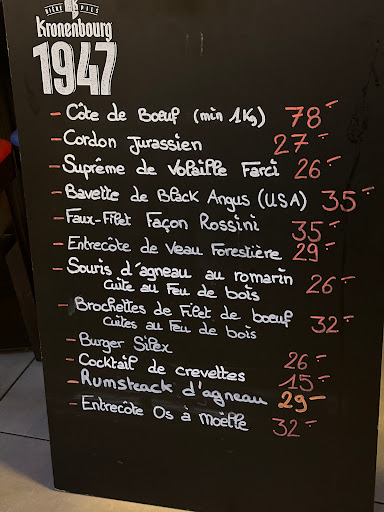 BIÈRE PILS
Kronenbourg
1947
- Côte de Boeuf (min 1Kg) 78.-
- Cordon Jurassien 27.-
- Suprême de Volaille Farci 26.-
- Bavette de Black Angus (USA) 35.-
- Faux-Filet Façon Rossini 35.-
- Entrecôte de Veau Forestière 29.-
- Souris d'agneau au romarin 26.-
cuite au Feu de bois
- Brochettes de Filet de boeuf 32.-
cuites au Feu de bois
- Burger Silex 26.-
- Cocktail de crevettes 15.-
- Rumsteack d'agneau 29.-
- Entrecôte Os à Moëlle 32.-